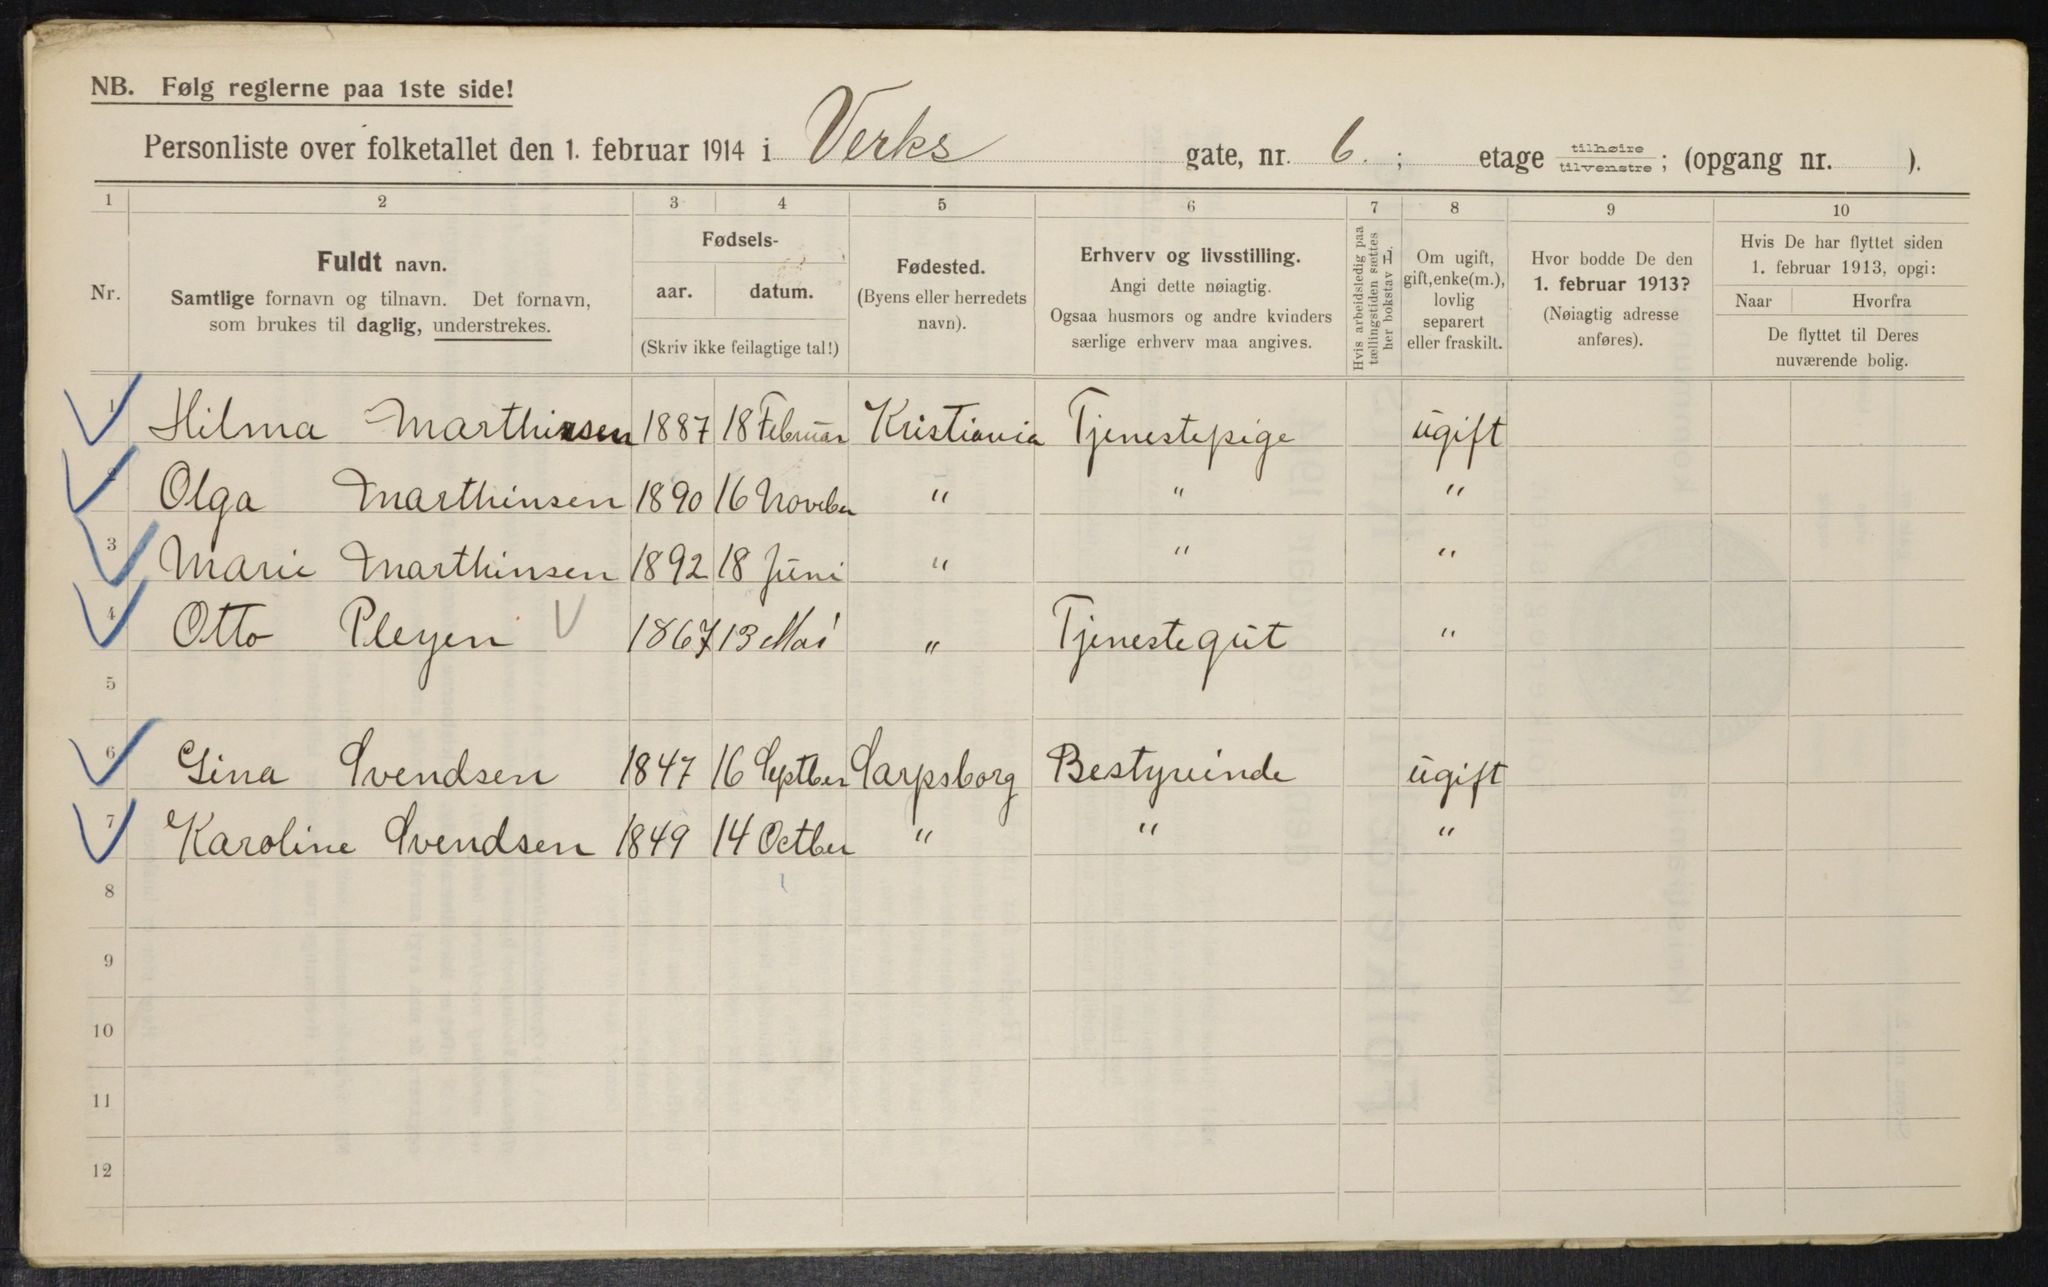 NB. Følg reglerne paa 1ste side!
Personliste over folketallet den 1. februar 1914 i Verks gate, nr. 6. ; etage tilhøire / tilvenstre ; (opgang nr. ).
1 2 3 4 5 6 7 8 9 10
Nr.
Fuldt navn.
Samtlige fornavn og tilnavn. Det fornavn,
som brukes til daglig, understrekes.
Fødsels-
aar. datum.
(Skriv ikke feilagtige tal!)
Fødested.
(Byens eller herredets
navn).
Erhverv og livsstilling.
Angi dette nøiagtig.
Ogsaa husmors og andre kvinders
særlige erhverv maa angives.
Hvis arbeidsledig paa
tællingstiden sættes
her bokstav L.
Om ugift,
gift, enke(m.),
lovlig
separert
eller fraskilt.
Hvor bodde De den
1. februar 1913?
(Nøiagtig adresse
anføres).
Hvis De har flyttet siden
1. februar 1913, opgi:
Naar Hvorfra
De flyttet til Deres
nuværende bolig.
1 Hilma Marthinsen 1887 18 Februar Kristiania Tjenestepige ugift
2 Olga Marthinsen 1890 16 Noveber " " "
3 Marie Marthinsen 1892 18 Juni " " "
4 Otto Pleyen 1867 13 Mai " Tjenestegut "
5
6 Gina Svendsen 1847 16 Septber Sarpsborg Bestyrinde ugift
7 Karoline Svendsen 1849 14 Octber " " "
8
9
10
11
12